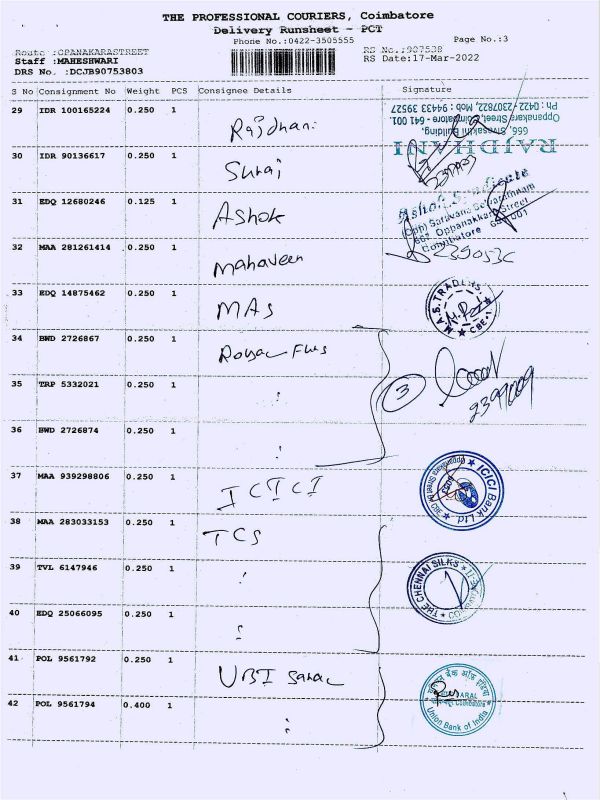 THE PROFESSIONAL COURIERS, Coimbatore
Delivery Runsheet - PCT
Phone No.:0422-3505555
Page No.:3
Route :OPANAKARASTREET
RS No.:907538
Staff :MAHESHWARI
RS Date:17-Mar-2022
DRS No. :DCJB90753803
S No Consignment No Weight PCS Consignee Details Signature
29 IDR 100165224 0.250 1 Rajdhani
RAJDHANI
666, Sreesakthi Building,
Oppanakara Street, Coimbatore - 641 001.
Ph : 0422 - 2307822, Mob : 94433 39527
30 IDR 90136617 0.250 1 Suraj
31 EDQ 12680246 0.125 1 Ashok
Ashok Syndicate
(Opp) Saravana Selvarathnam
667, Oppanakkara Street
Coimbatore 641 001
32 MAA 281261414 0.250 1 Mahaveer
33 EDQ 14875462 0.250 1 MAS
M.A.S. TRADERS
CBE-1
34 BWD 2726867 0.250 1
35 TRP 5332021 0.250 1 :
3
36 BWD 2726874 0.250 1 :
37 MAA 939298806 0.250 1 ICICI
ICICI Bank Ltd.
38 MAA 283033153 0.250 1 TCS
39 TVL 6147946 0.250 1 :
THE CHENNAI SILKS
40 EDQ 25066095 0.250 1 :
41 POL 9561792 0.250 1 UBI
यूनियन बैंक ऑफ इंडिया
Union Bank of India
42 POL 9561794 0.400 1 :